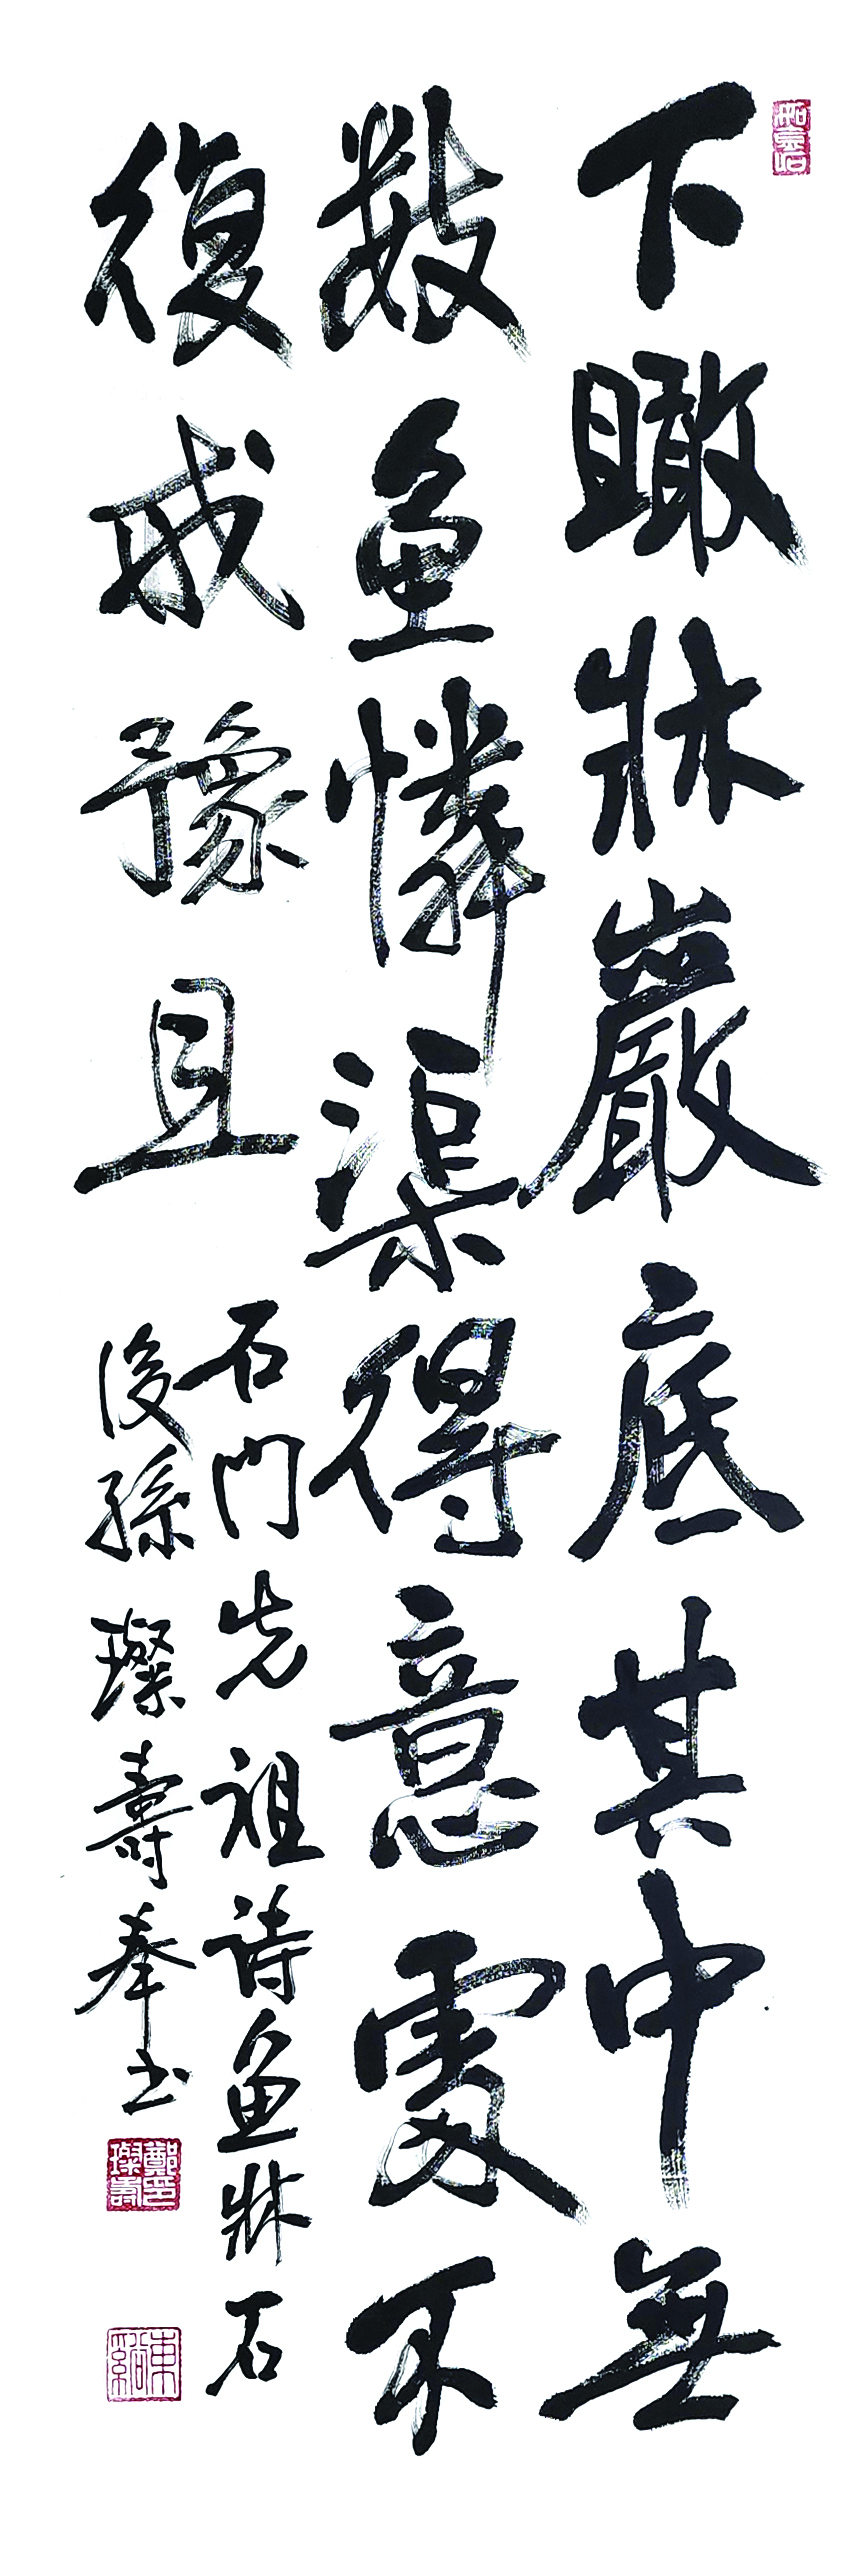 下瞰牀巖底其中無
數魚憐渠得意處不
復戒豫且
石門先祖詩魚牀石
後孫璨壽奉書
鄭印璨壽